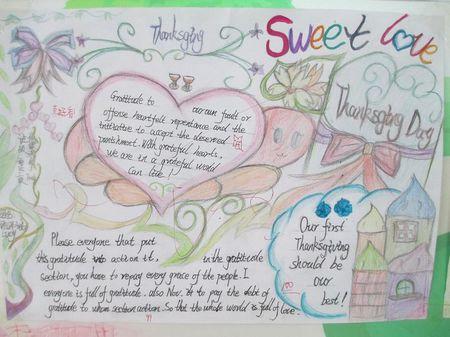 Thanksgiving
Sweet love
Thanksgiving Day
Gratitude to our own fault or
offense heartfelt repentance and the
initiative to accept the deserved
punishment. With grateful hearts,
we are in a grateful world
Can live!
Our first
Thanksgiving
should be
our
best!
Please everyone that put
this gratitude into action it, in the gratitude
section, you have to repay every grace of the people. I
everyone is full of gratitude. also Now. at to pay the debt of
gratitude to whom section action. So that the whole world is full of love.